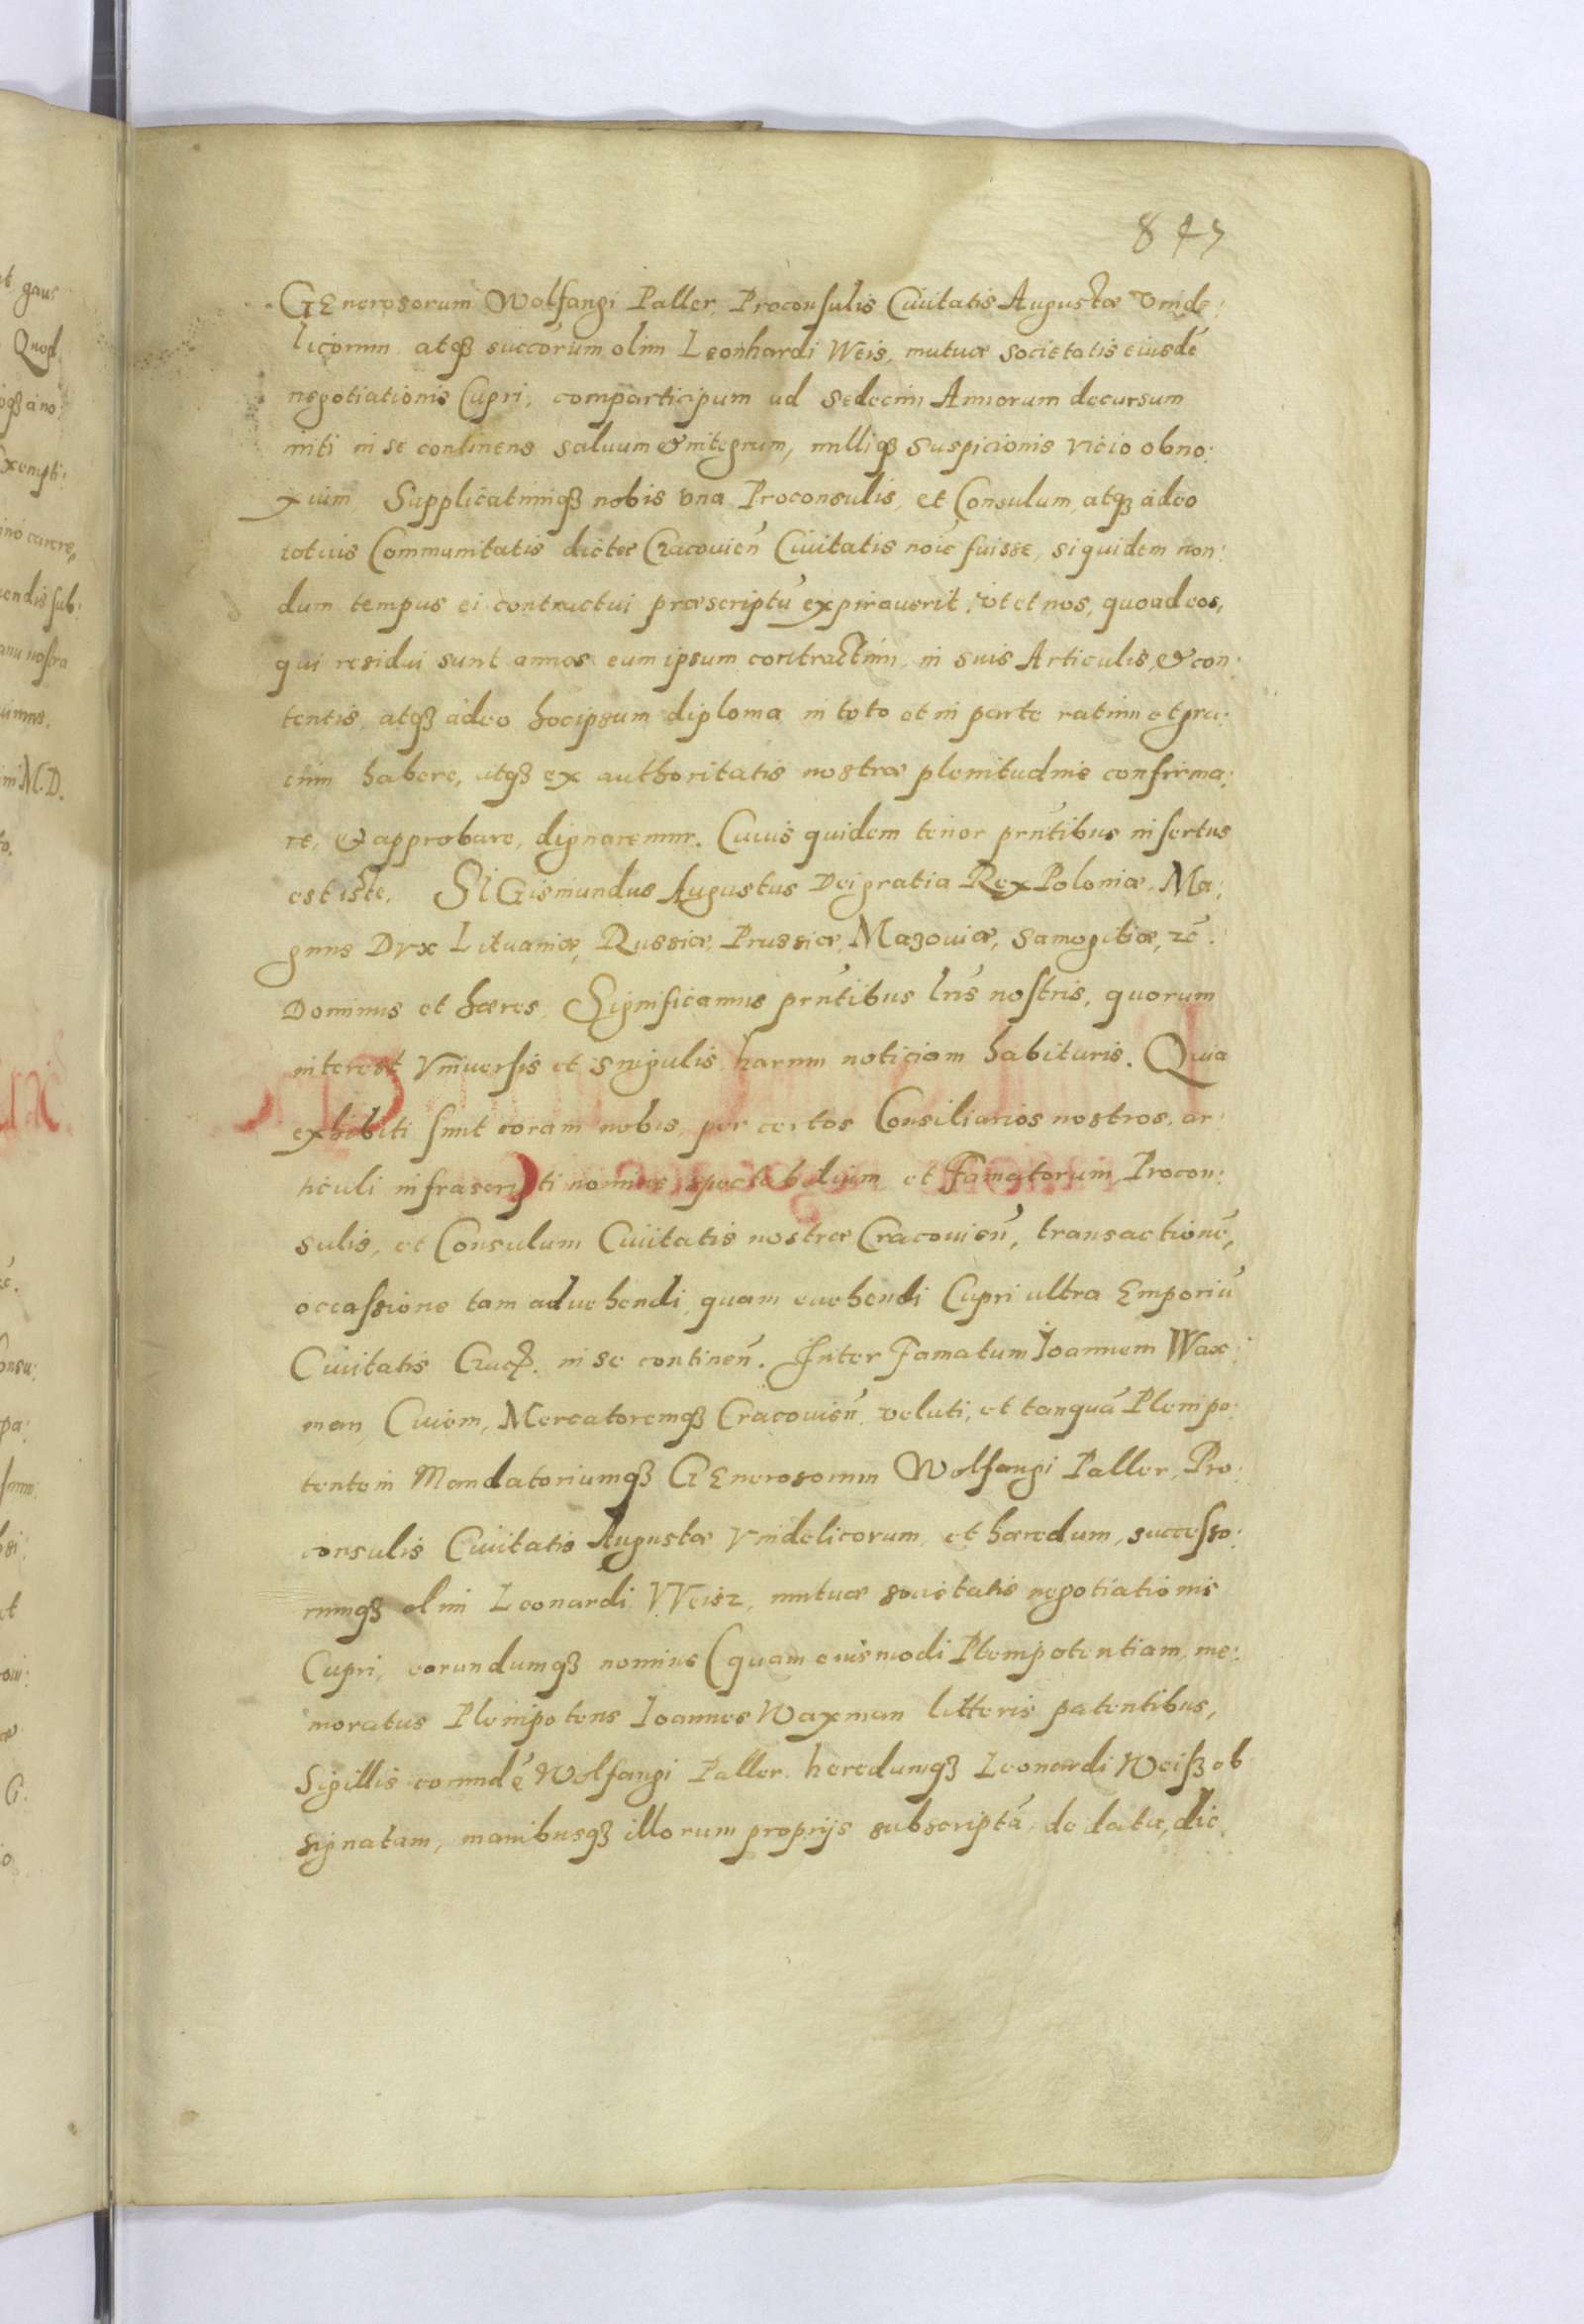 845
GEnerosorum Wolfangi Paller, Proconsulis Ciuitatis Augustæ vinde:
licorum atqꝫ succorum olim Leonhardi Weis, mutuæ societatis eiusdē
negotiationis Cupri, comparticipum ad sedecim Annorum decursum
initi in se continens saluum & integrum, nulliqꝫ suspicionis vicio obno:
xium Supplicatumqꝫ nobis vna Proconsulis, et Consulum, atqꝫ adeo
totius Communitatis dictæ Cracouien̄ Ciuitatis noīe fuisse, siquidem non:
dum tempus ei contractui præscriptū expirauerit, vt et nos, quoad eos,
qui residui sunt annos eum ipsum contractum, in suis Articulis, & con:
tentis, atqꝫ adeo hocipsum diploma in toto et in parte ratum et gra:
tum habere, atqꝫ ex authoritatis nostræ plenitudine confirma:
re, & approbare, dignaremur. Cuius quidem tenor prn̄tibus insertus
est iste. SIGismundus Augustus Dei gratia Rex Poloniæ, Ma:
gnus Dvx Lituaniæ, Russiæ, Prussiæ, Mazouiæ, Samogitiæ, zc̄.
Dominus et hæres, Significamus prn̄tibus lrīs nostris, quorum
interest vniuersis et singulis harum noticiam habituris. Quia
exhibiti sunt coram nobis, per certos Consiliarios nostros, ar:
ticuli infrascripti nomine spectabilium et Famatorum, Procon:
sulis, et Consulum Ciuitatis nostræ Cracouien̄, transactionē,
occassione tam aduehendi, quam euehendi Cupri vltra Emporiū
Ciuitatis Crac. in se continen̄. Inter Famatum Ioannem Wax:
man, Ciuem, Mercatoremqꝫ Cracouien̄ veluti, et tanquā Plenipo:
tentem Mandatoriumqꝫ GEnerosorum Wolfangi Paller, Pro:
consulis Ciuitatis Augustæ Vindelicorum, et hæredum, successo:
rumqꝫ olim Leonardi Weisz, mutuæ societatis negotiationis
Cupri, eorundumqꝫ nomine (quam eiusmodi Plenipotentiam, me:
moratus Plenipotens Ioannes Waxman litteris patentibus,
Sigillis eorundē Wolfangi Paller heredumqꝫ Leonardi Weiß ob
signatam, manibusqꝫ illorum proprijs subscriptā, de data, die